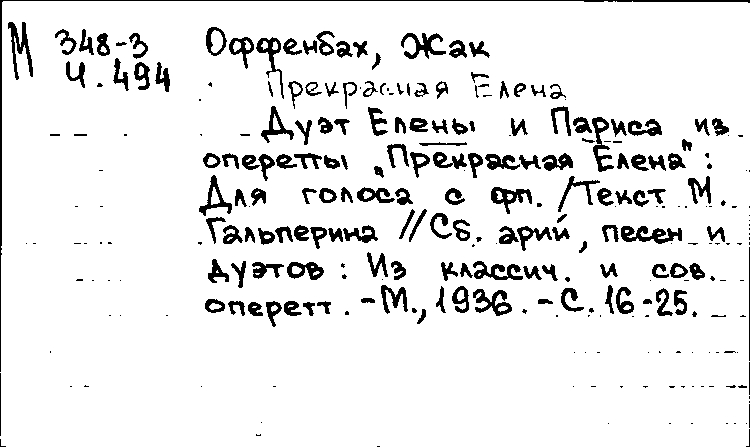 М 348-3 Оффенбах, Жак
Ч. 494 Прекрасная Елена
Дуэт Елены и Париса из
оперетты „Прекрасная Елена":
Для голоса с фп. / Текст М.
Гальперина // Сб. арий, песен и
дуэтов : Из классич. и сов.
оперетт. - М., 1936. - С. 16-25.